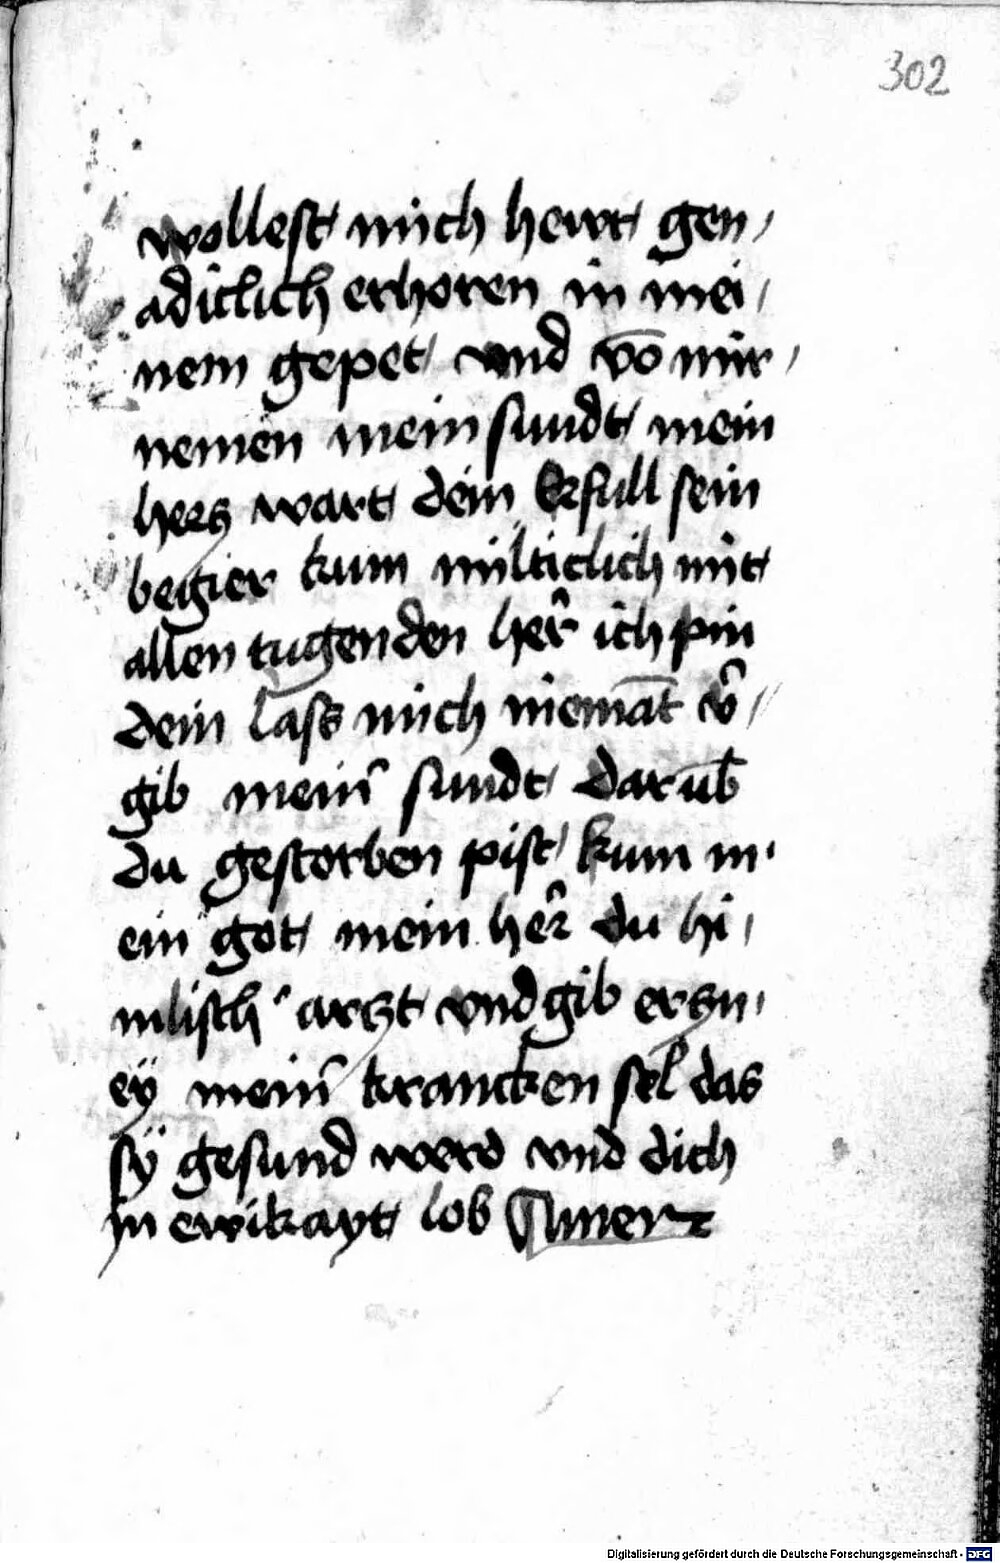 302
wollest mich herr gen,
adiclich erhoren in mei,
nem gepet und vō mir,
nemen mein sundt mein
hercz wart dein Erfull sein
begier kum milticlich mit
allen tugenden her̂ ich pin
dein lass mich niemāt v̂,
gib mein̂ sundt darūb
du gestorben pist kum m,
ein got mein her̂ du hi,
mlisch̾ arczt vnd gib erczn,
eÿ mein̂ krancken sel das
sÿ gesund werd vnd dich
in ewikayt lob Amen
Digitalisierung gefördert durch die Deutsche Forschungsgemeinschaft - DFG